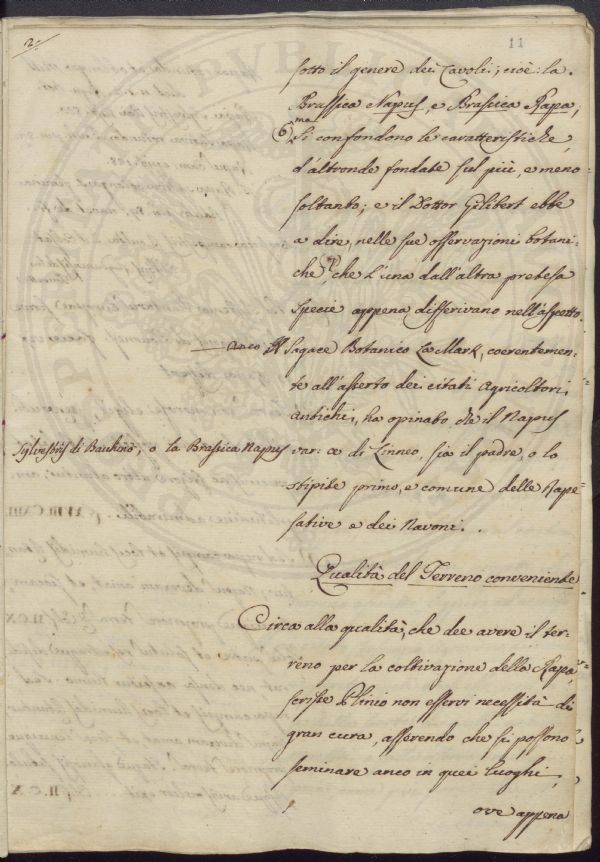 2.
11
sotto il genere dei Cavoli; cioè: la
Brassica Napus, e Brassica Rapa;
ma
(6) Si confondono le caratteristiche,
d'altronde fondate sul più, e meno
soltanto; e il Dottor Gilibert ebbe
a dire, nelle sue osservazioni botani=
che, (7) che l'una dall'altra pretesa
specie appena differivano nell'aspetto.
anco Il Sagace Botanico La Mark, coerentemen=
te all'asserto dei citati Agricoltori
antichi, ha opinato che il Napus
Sylvestris di Bauhino, o la Brassica Napus
var: α di Linneo, sia il padre, o lo
stipite primo, e comune delle Rape
sative e dei Navoni.
Qualità del Terreno conveniente
Circa alla qualità, che dee avere il ter=
reno per la coltivazione della Rapa,
scrisse Plinio non esservi necessità di
gran cura, asserendo che si possono
seminare anco in quei luoghi,
ove appena